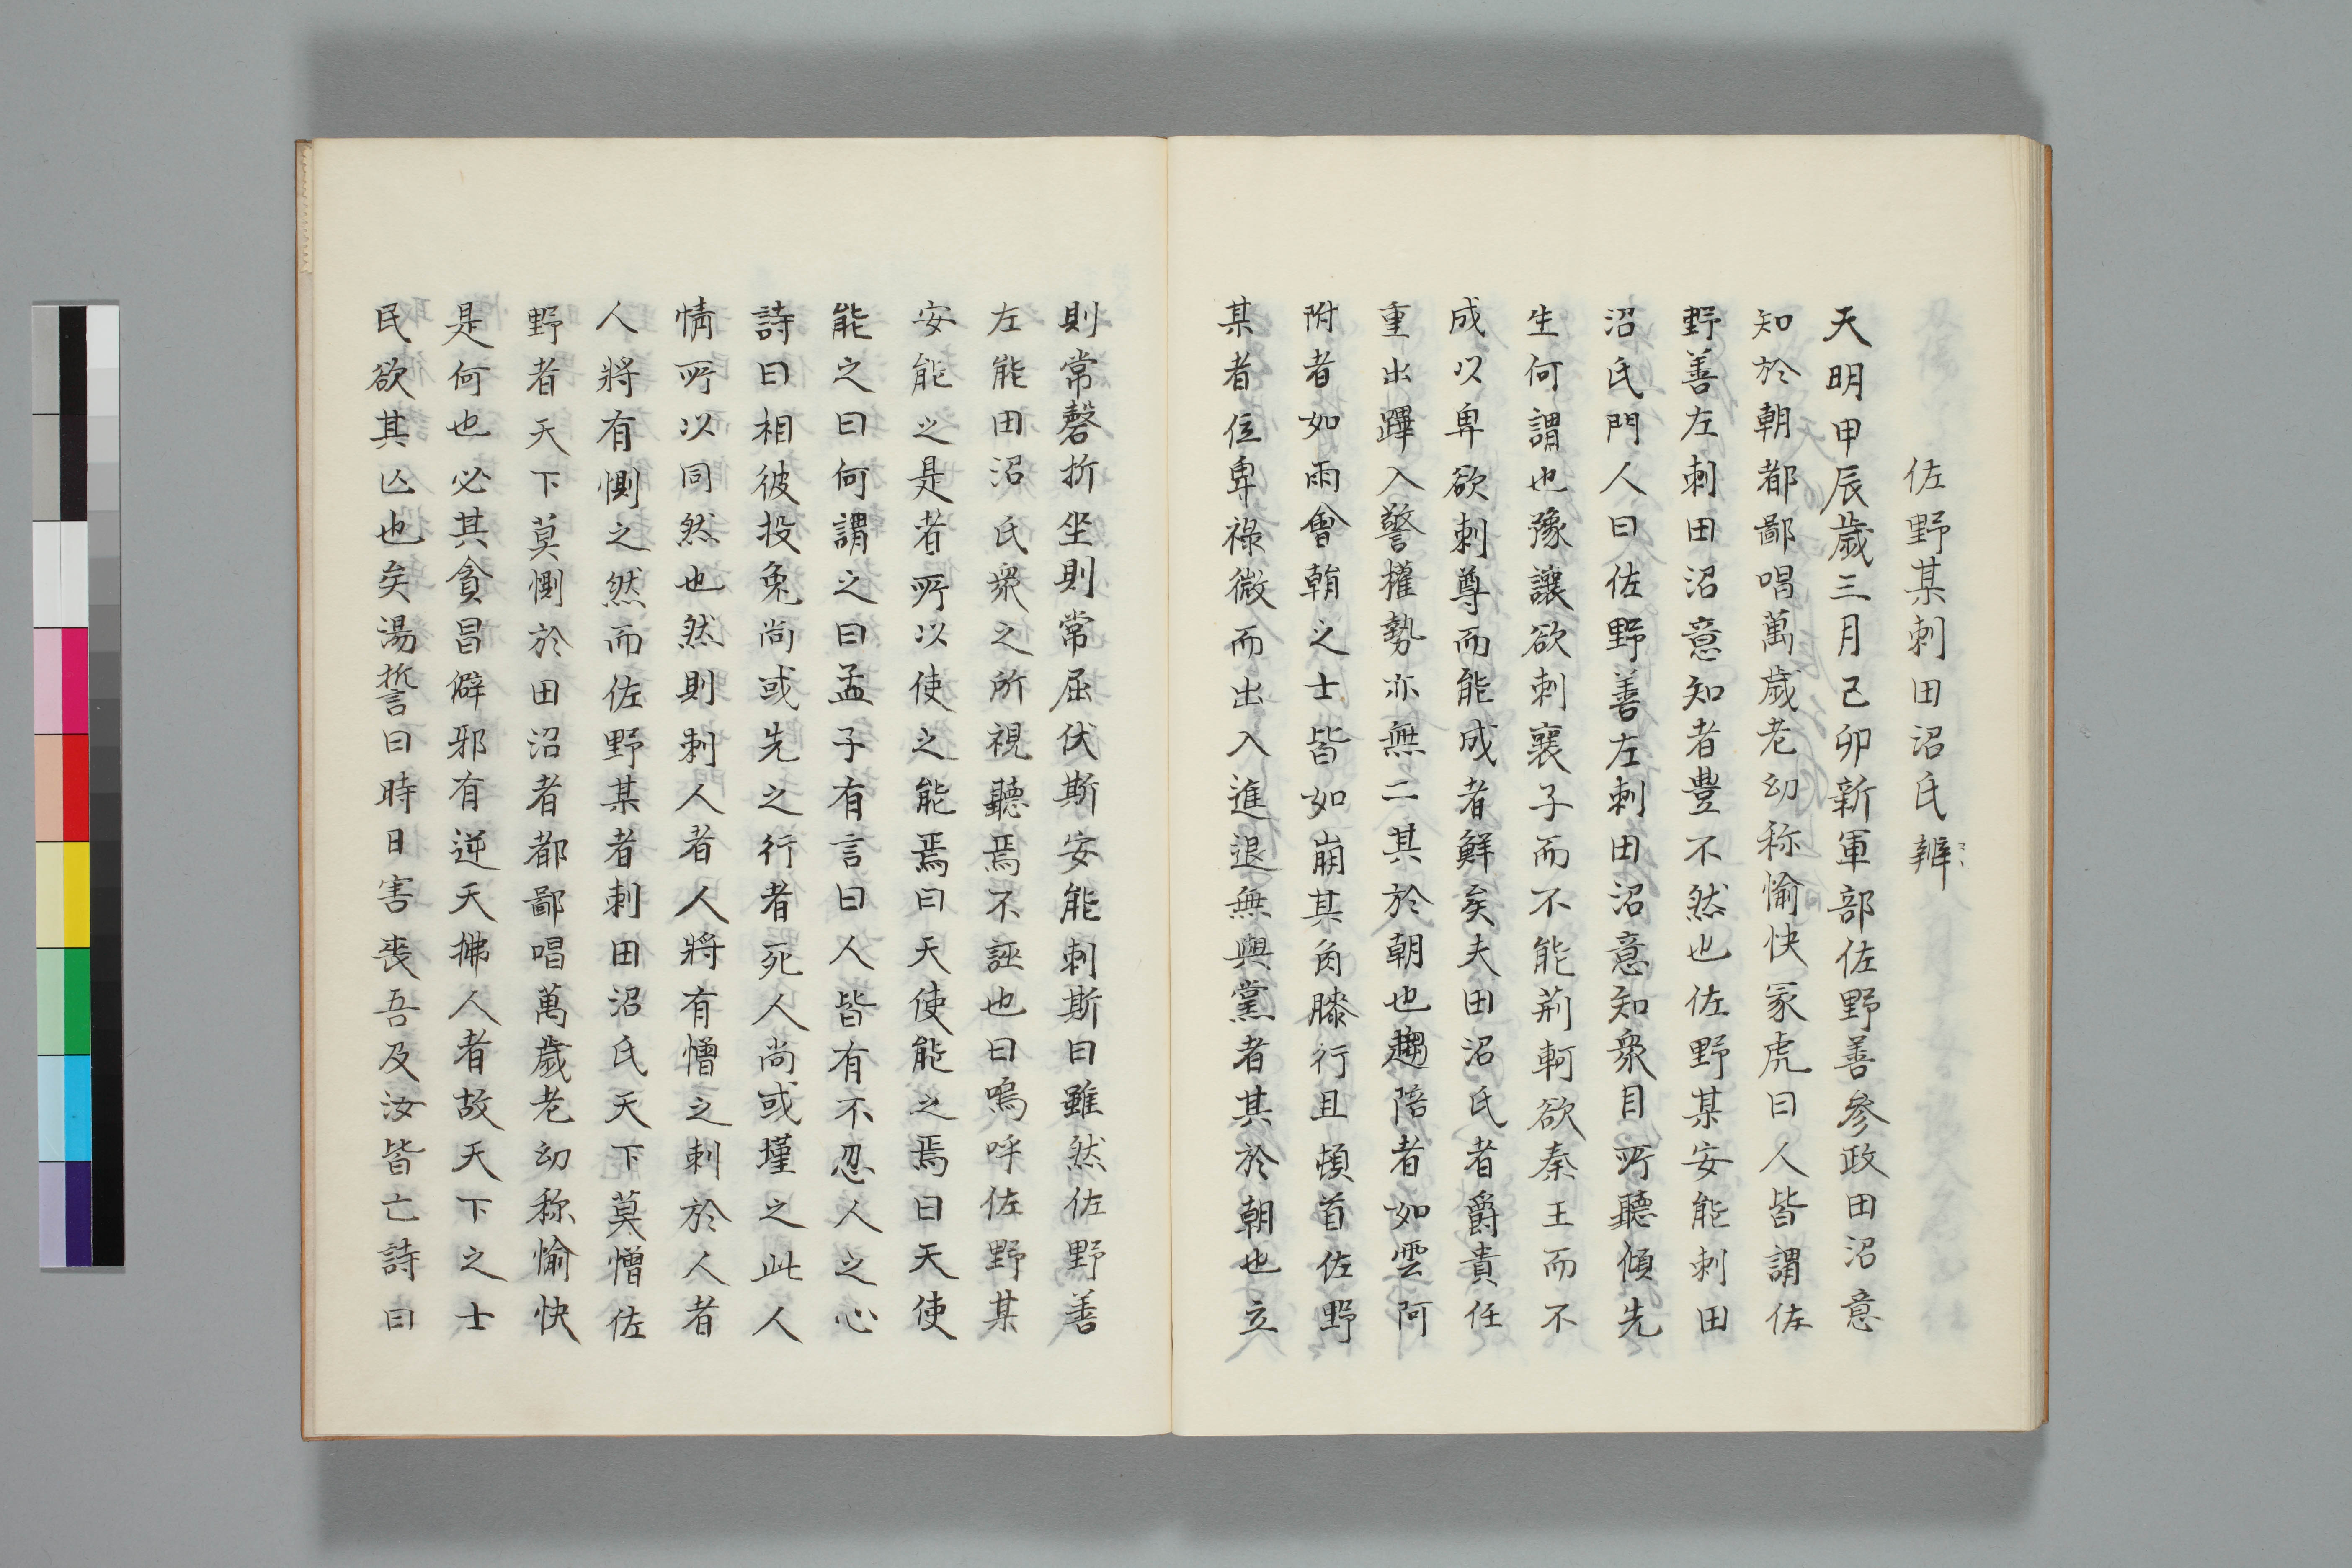 佐野某刺田沼氏辨
天明甲辰歳三月己卯新軍部佐野善参政田沼意
知於朝都鄙唱萬歳老幼称愉快冢虎曰人皆謂佐
野善左刺田沼意知者豊不然也佐野某安能刺田
沼氏門人曰佐野善左刺田沼意知衆目所聽傾先
生何謂也豫讓欲刺襄子而不能荊軻欲秦王而不
成以卑欲刺尊而能成者鮮矣夫田沼氏者爵貴任
重出蹕入警權勢亦無二其於朝也趨陪者如雲阿
附者如雨會朝之士皆如崩其角膝行且頓首佐野
某者位卑祿微而出入進退無與黨者其於朝也立
則常磬折坐則常屈伏斯安能刺斯曰雖然佐野善
左能田沼氏衆之所視聽焉不誣也曰嗚呼佐野某
安能之是者所以使之能焉曰天使能之焉曰天使
能之曰何謂之曰孟子有言曰人皆有不忍人之心
詩曰相彼投兔尚或先之行者死人尚或墐之此人
情所以同然也然則刺人者人將有憎之刺於人者
人將有惻之然而佐野某者刺田沼氏天下莫憎佐
野者天下莫惻於田沼者都鄙唱萬歳老幼称愉快
是何也必其貪冒僻邪有逆天拂人者故天下之士
民欲其亾也矣湯誓曰時日害喪吾及汝皆亡詩曰